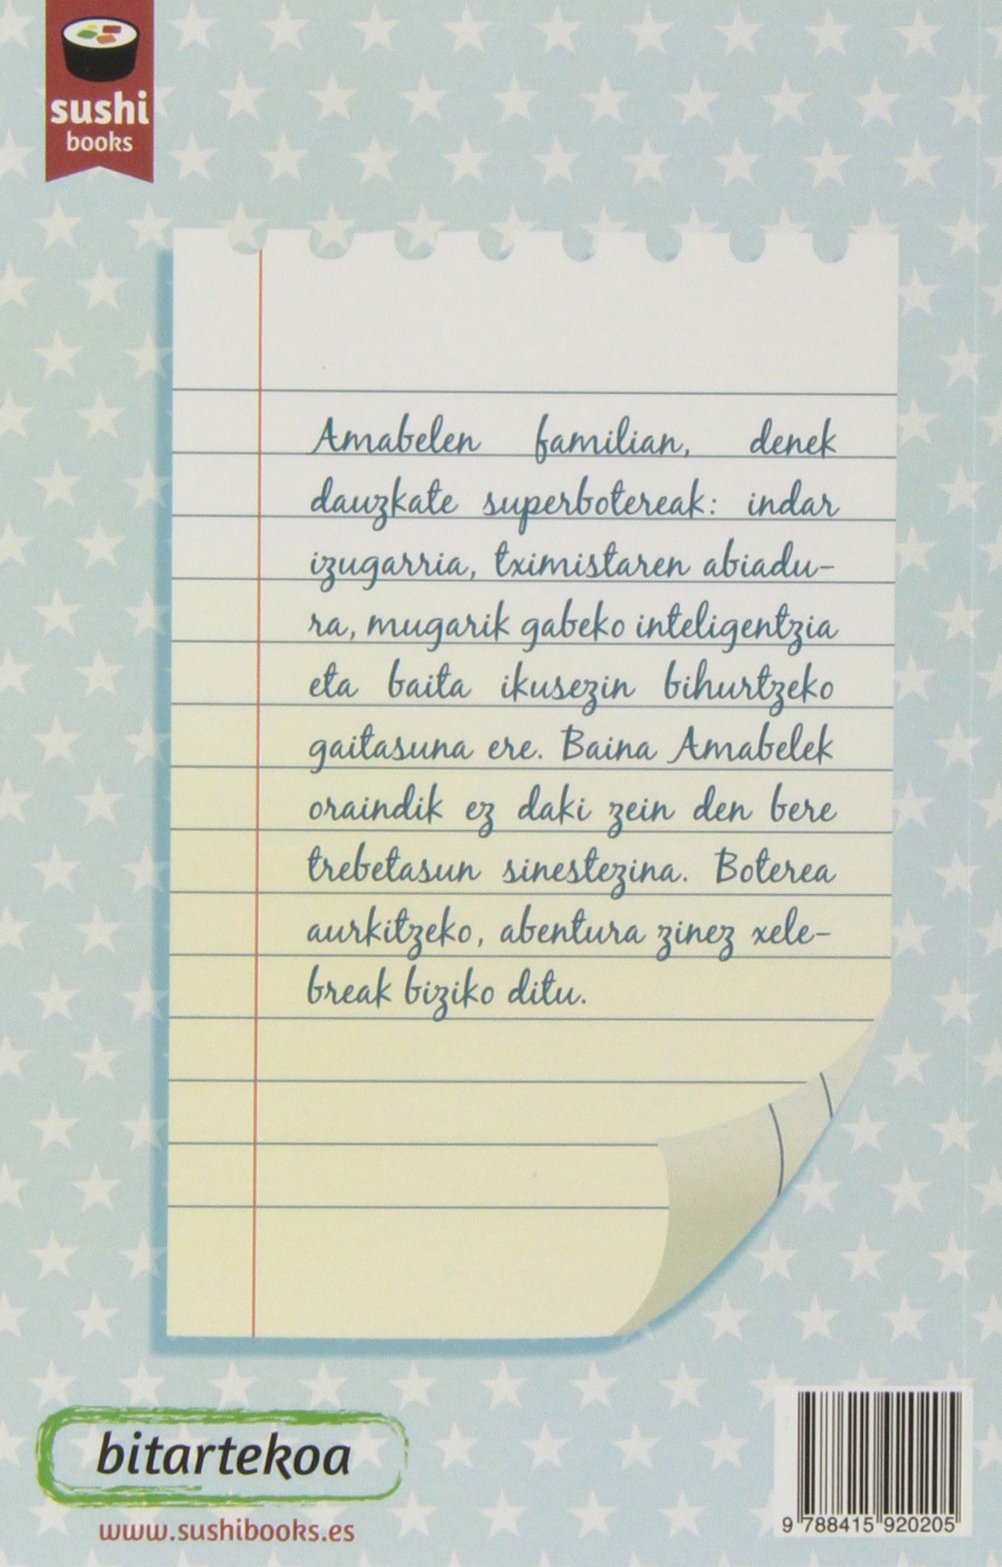 sushi
books
Amabelen familian, denek
dauzkate superbotereak: indar
izugarria, tximistaren abiadu-
ra, mugarik gabeko inteligentzia
eta baita ikusezin bihurtzeko
gaitasuna ere. Baina Amabelek
oraindik ez daki zein den bere
trebetasun sinestezina. Boterea
aurkitzeko, abentura zinez xele-
break biziko ditu.
bitartekoa
www.sushibooks.es
9 788415 920205